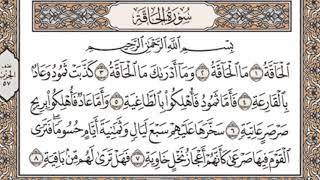 سُورَةُ الحَاقَّةِ
بِسْمِ اللَّهِ الرَّحْمَٰنِ الرَّحِيمِ
الْحَاقَّةُ ١ مَا الْحَاقَّةُ ٢ وَمَا أَدْرَىٰكَ مَا الْحَاقَّةُ ٣ كَذَّبَتْ ثَمُودُ وَعَادٌ
بِالْقَارِعَةِ ٤ فَأَمَّا ثَمُودُ فَأُهْلِكُوا بِالطَّاغِيَةِ ٥ وَأَمَّا عَادٌ فَأُهْلِكُوا بِرِيحٍ
صَرْصَرٍ عَاتِيَةٍ ٦ سَخَّرَهَا عَلَيْهِمْ سَبْعَ لَيَالٍ وَثَمَٰنِيَةَ أَيَّامٍ حُسُومًا فَتَرَى
الْقَوْمَ فِيهَا صَرْعَىٰ كَأَنَّهُمْ أَعْجَازُ نَخْلٍ خَاوِيَةٍ ٧ فَهَلْ تَرَىٰ لَهُم مِّنۢ بَاقِيَةٍ ٨
الحزب
٥٧